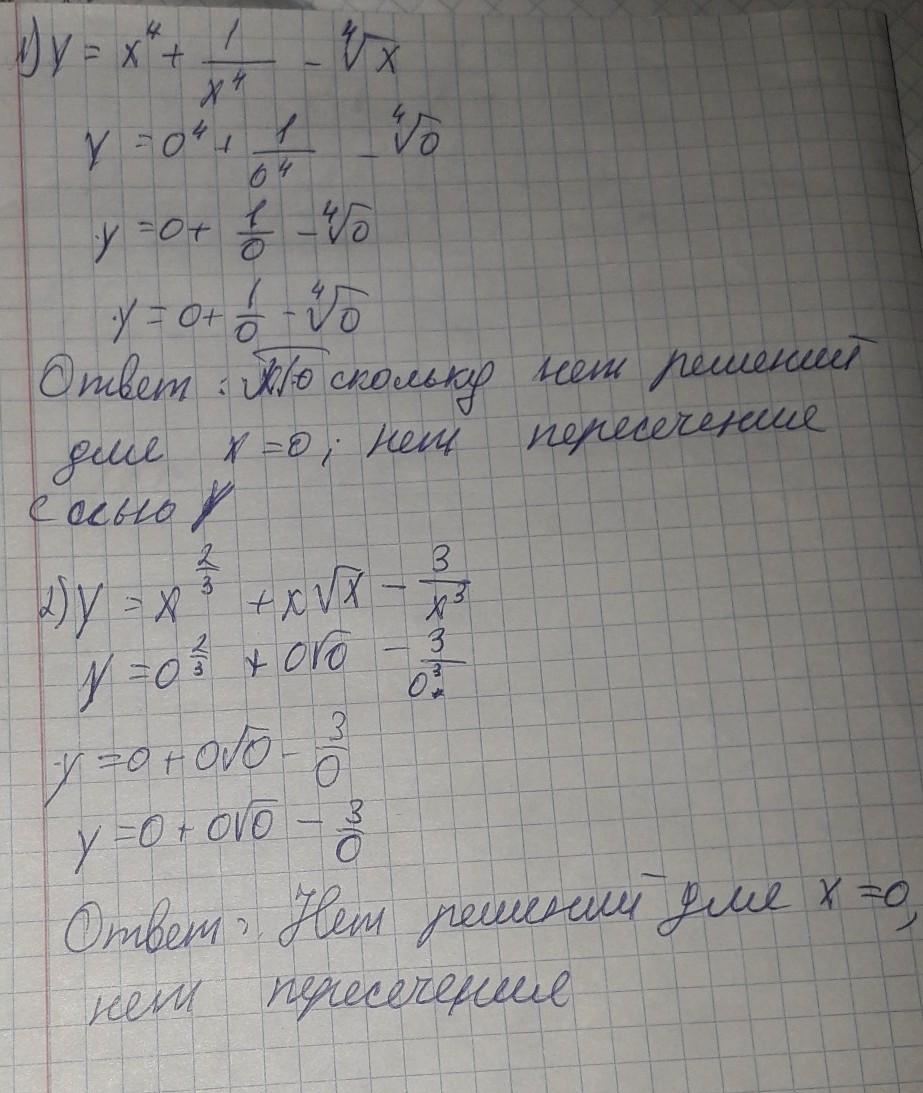 1) y = x⁴ + 1/x⁴ - ∜x
y = 0⁴ + 1/0⁴ - ∜0
y = 0 + 1/0 - ∜0
y = 0 + 1/0 - ∜0
Ответ: скольку нет решений
для x = 0; нет пересечение
с осью y
2) y = x^(2/3) + x√x - 3/x³
y = 0^(2/3) + 0√0 - 3/0³
y = 0 + 0√0 - 3/0
y = 0 + 0√0 - 3/0
Ответ: Нет решений для x = 0,
нет пересечение